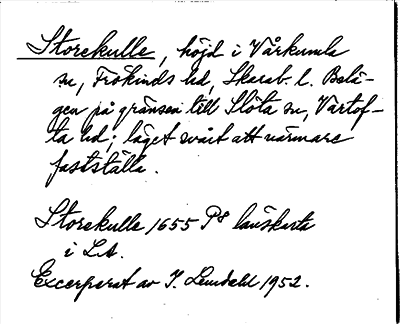 Storekulle, höjd i Vårkumla
sn, Frökinds hd, Skarab. l. Belä-
gen på gränsen till Slöta sn, Vartof-
ta hd; läget svårt att närmare
fastställa.
Storekulle 1655 P8 lantkarta
i LA.
Excerperat av I. Lundahl 1952.